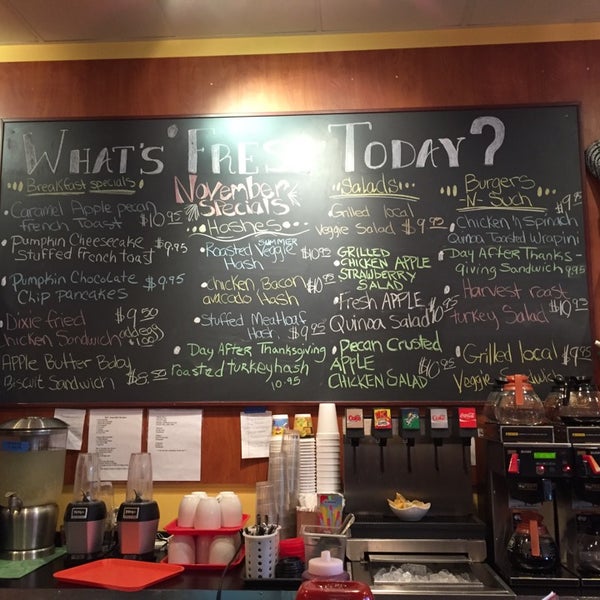 WHAT'S FRESH TODAY?
Breakfast specials
Caramel Apple pecan
french Toast $10.95
Pumpkin Cheesecake
Stuffed french toast $9.95
Pumpkin Chocolate
Chip Pancakes $9.95
Dixie fried
chicken Sandwich $9.50
add egg
$1.00
APPLE Butter Baby
Biscuit Sandwich $8.50
November
specials
Hashes
SUMMER
Roasted Veggie
Hash $10.95
Chicken Bacon
avocado Hash $10
Stuffed Meatloaf
Hash $9.95
Day After Thanksgiving
roasted turkey hash
10.95
Salads
Grilled local
Veggie Salad $9.50
GRILLED
CHICKEN APPLE
STRAWBERRY
SALAD
Fresh APPLE
Quinoa Salad $10
Pecan Crusted
APPLE
CHICKEN SALAD $10.95
Burgers
-N- Such
Chicken 'n Spinach
Quinoa Toasted Wrapini $9.95
Day After Thanks-
giving Sandwich 9.95
Harvest roast
turkey Salad $10.95
Grilled local
Veggie Sandwich $9.95